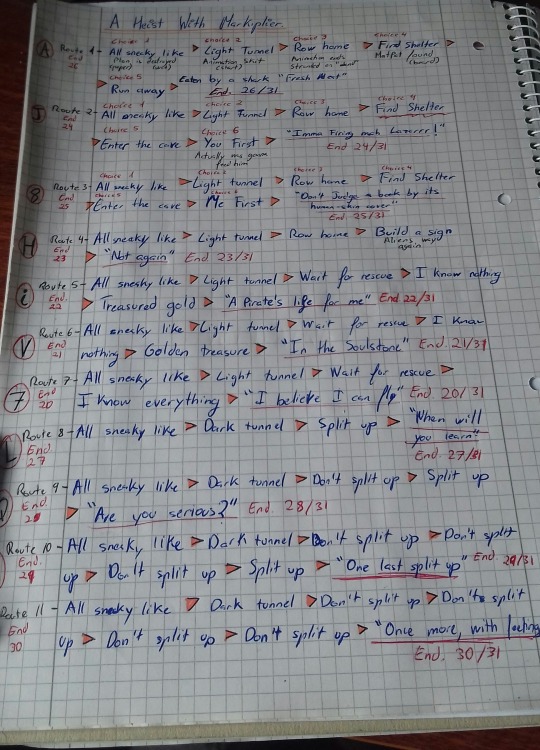 A Heist With Markiplier
Choice 1 Choice 2 Choice 3 Choice 4
A Route 1 - All sneaky like ▶ Light Tunnel ▶ Row home ▶ Find Shelter ▶
End 26
Choice 5
Run away ▶ Eaten by a shark "Fresh Meat"
End. 26/31
Choice 1 Choice 2 Choice 3 Choice 4
J Route 2 - All sneaky like ▶ Light Tunnel ▶ Row home ▶ Find Shelter
End 24
Choice 5 Choice 6
▶ Enter the cave ▶ You First ▶ "Imma Firing mah Lazerr!"
End 24/31
Choice 1 Choice 2 Choice 3 Choice 4
8 Route 3 - All sneaky like ▶ Light tunnel ▶ Row home ▶ Find Shelter
End 25
▶ Enter the cave ▶ Me First ▶ "Don't Judge a book by its
human-skin cover"
End. 25/31
H Route 4 - All sneaky like ▶ Light tunnel ▶ Row home ▶ Build a sign
End 23
Aliens again
▶ "Not again" End 23/31
i Route 5 - All sneaky like ▶ Light tunnel ▶ Wait for rescue ▶ I know nothing
End. 22
▶ Treasured gold ▶ "A Pirate's life for me" End 22/31
V Route 6 - All sneaky like ▶ Light tunnel ▶ Wait for rescue ▶ I know
End 21
nothing ▶ Golden treasure ▶ "In the Soulstone" End 21/31
7 Route 7 - All sneaky like ▶ Light tunnel ▶ Wait for rescue ▶
End 20
I Know everything ▶ "I believe I can fly" End 20/31
Route 8 - All sneaky like ▶ Dark tunnel ▶ Split up ▶ "When will
End 27
you learn?"
End- 27/31
Route 9 - All sneaky like ▶ Dark tunnel ▶ Don't split up ▶ Split up
End.
▶ "Are you serious?" End 28/31
Route 10 - All sneaky like ▶ Dark tunnel ▶ Don't split up ▶ Don't split
End.
up ▶ Don't split up ▶ Split up ▶ "One last split up" End. 29/31
Route 11 - All sneaky like ▶ Dark tunnel ▶ Don't split up ▶ Don't split
End 30
up ▶ Don't split up ▶ Don't split up ▶ "Once more, with feeling
End. 30/31